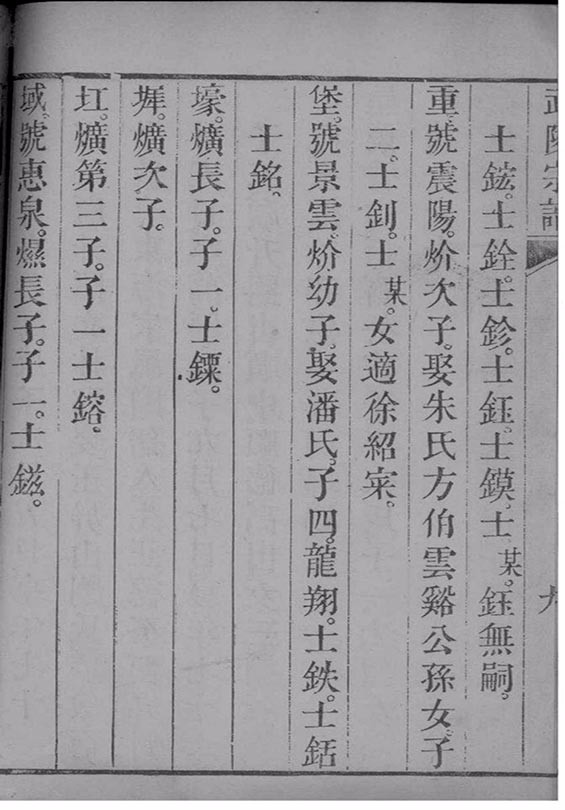 武陵宗譜 九
士鋐。士銓。士鉁。士鈺。士鏌。士某。鈺無嗣。
重。號震陽。炌次子。娶朱氏方伯雲谿公孫女子
二。士釗。士某。女適徐紹宷。
堡。號景雲。炌幼子。娶潘氏。子四。龍翔。士鉄。士銛
士銘。
壕。爌長子。子一。士鏢。
墀。爌次子。
𡉏。爌第三子。子一士鎔。
域。號惠泉。爃長子。子一。士鎡。